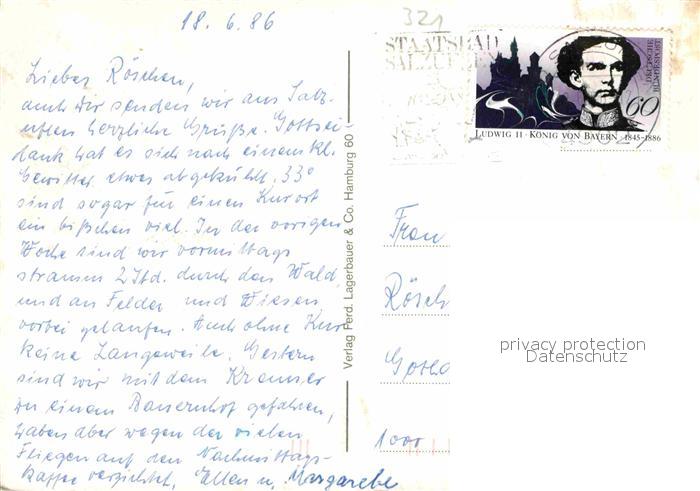 18.6.86
321
Liebes Röschen,
auch Dir senden wir aus Salz-
uflen herzliche Grüße. Gottsei
dank hat es sich nach einem kl.
Gewitter etwas abgekühlt. 33°
sind sogar für einen Kurort
ein bißchen viel. In der vorigen
Woche sind wir vormittags
stramm 2 Std. durch den Wald
und an Felder und Wiesen
vorbei gelaufen. Auch ohne Kur
keine Langeweile. Gestern
sind wir mit dem Kremser
zu einem Bauernhof gefahren,
haben aber wegen der vielen
Fliegen auf den Nachmittags-
kaffee verzichtet. Ellen u. Margarebe
Verlag Ferd. Lagerbauer & Co. Hamburg 60
STAATSBAD
SALZUFLEN
DEUTSCHE BUNDESPOST
60
LUDWIG II · KÖNIG VON BAYERN · 1845-1886
Frau
Rösch
Gotha
1000
privacy protection
Datenschutz